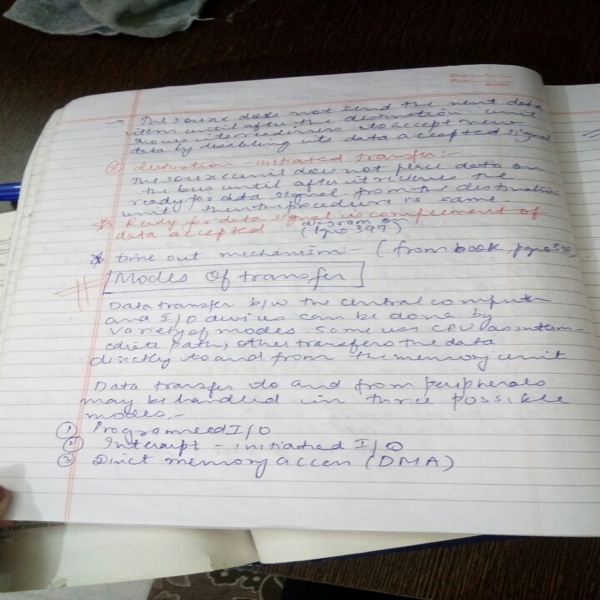 → The source does not send the next data
items until after the destination unit
shows its readiness to accept new
data by disabling its data accepted signal
② destination-initiated transfer:-
The source unit does not place data on
the bus until after it receives the
ready for data signal from the destination
unit, the procedure is same.
* Ready for data signal is complement of
data accepted (Diagram on Pgno 397)
* time out mechanism:- (from book, pgno 398
Modes Of transfer
Data transfer b/w the central computer
and I/O devices can be done by
Variety of modes some use CPU as interm-
ediate path, other transfers the data
directly to and from the memory unit
Data transfer to and from peripherals
may be handled in three possible
modes.-
① Programeed I/O
② Interrupt - initiated I/O
③ Direct memory access (DMA)